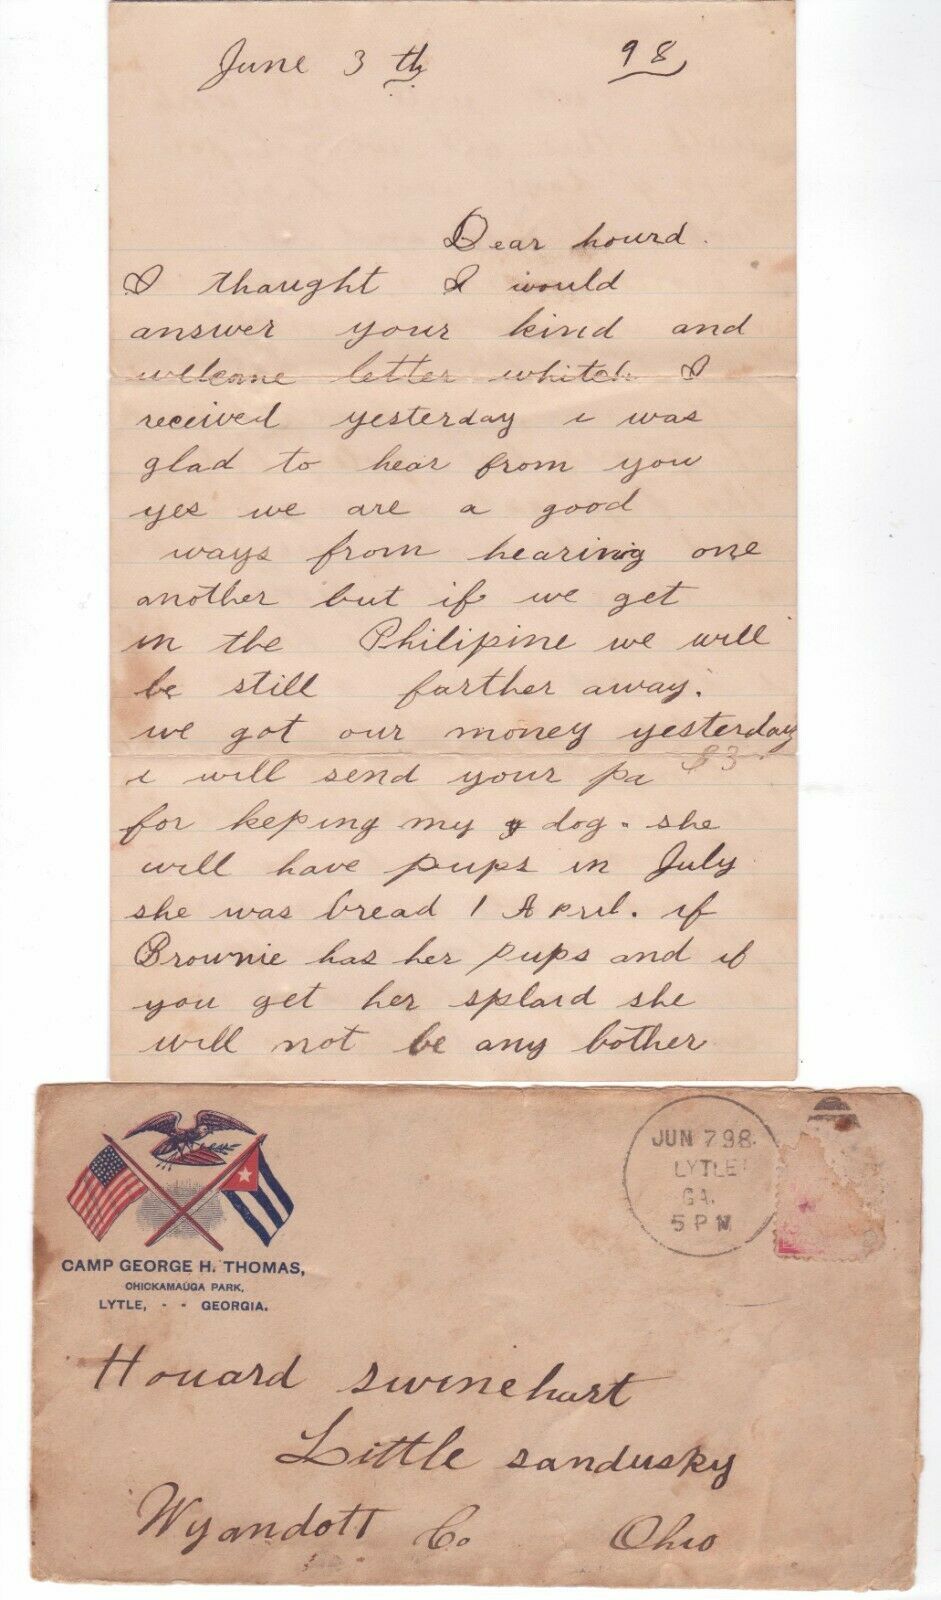 June 3th 98
Dear hourd.
I thaught I would
answer your kind and
welcome letter whitch I
received yesterday i was
glad to hear from you
yes we are a good
ways from hearing one
another but if we get
in the Philipine we will
be still farther away.
we got our money yesterday
i will send your pa $3
for keping my dog. she
will have pups in July
she was bread 1 April. if
Brownie has her pups and if
you get her splaid she
will not be any bother
JUN 7 98.
LYTLE
GA.
5 PM
CAMP GEORGE H. THOMAS,
CHICKAMAUGA PARK,
LYTLE, - - GEORGIA.
Houard swinehart
Little sandusky
Wyandott Co Ohio